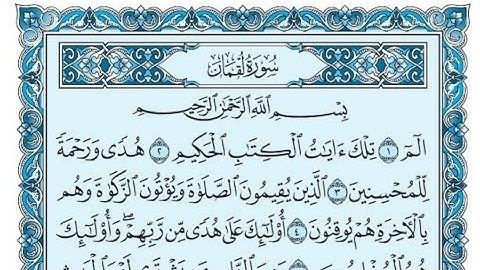 سُورَةُ لُقْمَانَ
بِسْمِ ٱللَّهِ ٱلرَّحْمَٰنِ ٱلرَّحِيمِ
الٓمٓ ١ تِلْكَ ءَايَٰتُ ٱلْكِتَٰبِ ٱلْحَكِيمِ ٢ هُدًى وَرَحْمَةً
لِّلْمُحْسِنِينَ ٣ ٱلَّذِينَ يُقِيمُونَ ٱلصَّلَوٰةَ وَيُؤْتُونَ ٱلزَّكَوٰةَ وَهُم
بِٱلْءَاخِرَةِ هُمْ يُوقِنُونَ ٤ أُوْلَٰٓئِكَ عَلَىٰ هُدًى مِّن رَّبِّهِمْ ۖ وَأُوْلَٰٓئِكَ